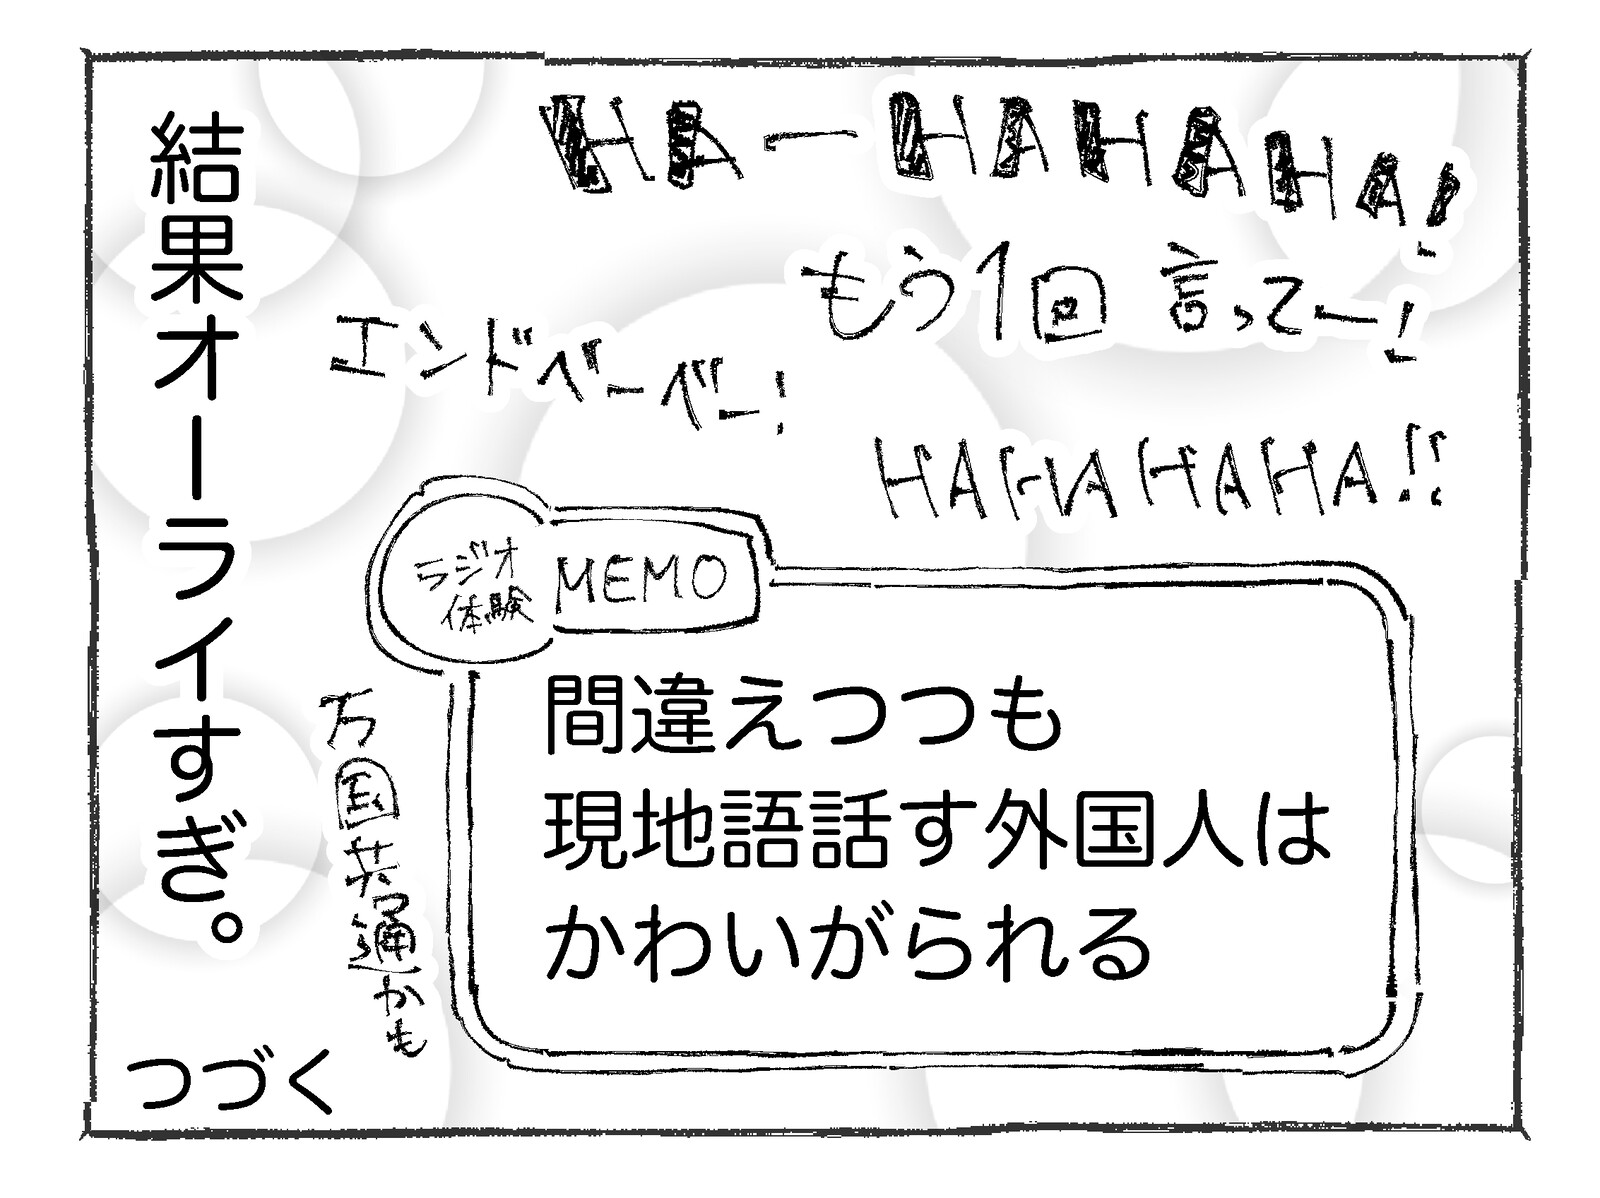 HA-HAHAHA!
もう1回言ってー!
エンドベーベー!
HAHAHAHA!!
結果オーライすぎ。
ラジオ
体験
MEMO
間違えつつも
現地語話す外国人は
かわいがられる
万国共通かも
つづく